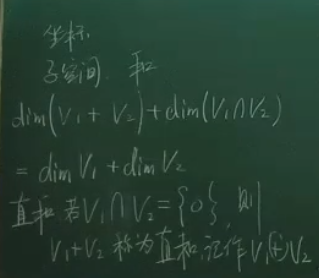 坐标.
子空间. 和
dim(V₁ + V₂) + dim(V₁∩V₂)
= dim V₁ + dim V₂
直和 若V₁∩V₂ = {0}, 则
V₁+V₂ 称为直和, 记作 V₁⊕V₂